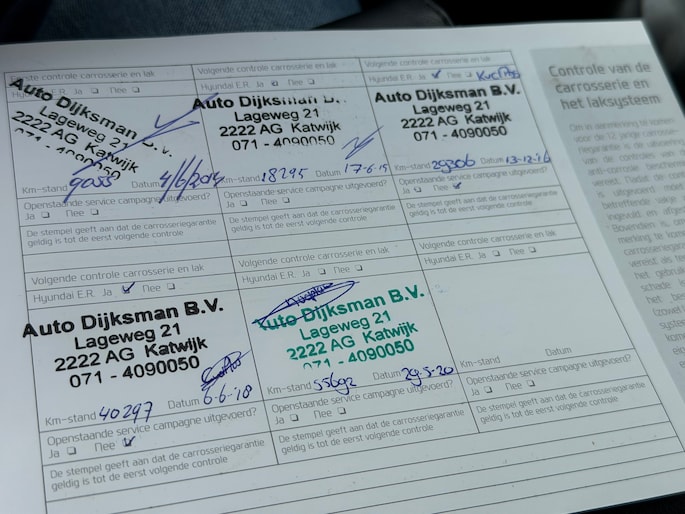 ste controle carrosserie en lak
Hyundai E.R. Ja Nee
Auto Dijksman B.V.
Lageweg 21
2222 AG Katwijk
071 - 4090050
Km-stand Datum 4/6/2014
Openstaande service campagne uitgevoerd?
Ja Nee
De stempel geeft aan dat de carrosseriegarantie
geldig is tot de eerst volgende controle
Volgende controle carrosserie en lak
Hyundai E.R. Ja Nee
Auto Dijksman B.V.
Lageweg 21
2222 AG Katwijk
071 - 4090050
Km-stand 18295 Datum 17-6-15
Openstaande service campagne uitgevoerd?
Ja Nee
De stempel geeft aan dat de carrosseriegarantie
geldig is tot de eerst volgende controle
Volgende controle carrosserie en lak
Hyundai E.R. Ja Nee
Auto Dijksman B.V.
Lageweg 21
2222 AG Katwijk
071 - 4090050
Km-stand 29306 Datum 13-12-16
Openstaande service campagne uitgevoerd?
Ja Nee
De stempel geeft aan dat de carrosseriegarantie
geldig is tot de eerst volgende controle
Volgende controle carrosserie en lak
Hyundai E.R. Ja Nee
Auto Dijksman B.V.
Lageweg 21
2222 AG Katwijk
071 - 4090050
Km-stand 40297 Datum 6-6-18
Openstaande service campagne uitgevoerd?
Ja Nee
De stempel geeft aan dat de carrosseriegarantie
geldig is tot de eerst volgende controle
Volgende controle carrosserie en lak
Hyundai E.R. Ja Nee
Auto Dijksman B.V.
Lageweg 21
2222 AG Katwijk
071 - 4090050
Km-stand 55692 Datum 29-5-20
Openstaande service campagne uitgevoerd?
Ja Nee
De stempel geeft aan dat de carrosseriegarantie
geldig is tot de eerst volgende controle
Volgende controle carrosserie en lak
Hyundai E.R. Ja Nee
Km-stand Datum
Openstaande service campagne uitgevoerd?
Ja Nee
De stempel geeft aan dat de carrosseriegarantie
geldig is tot de eerst volgende controle
Controle van de
carrosserie en
het laksysteem